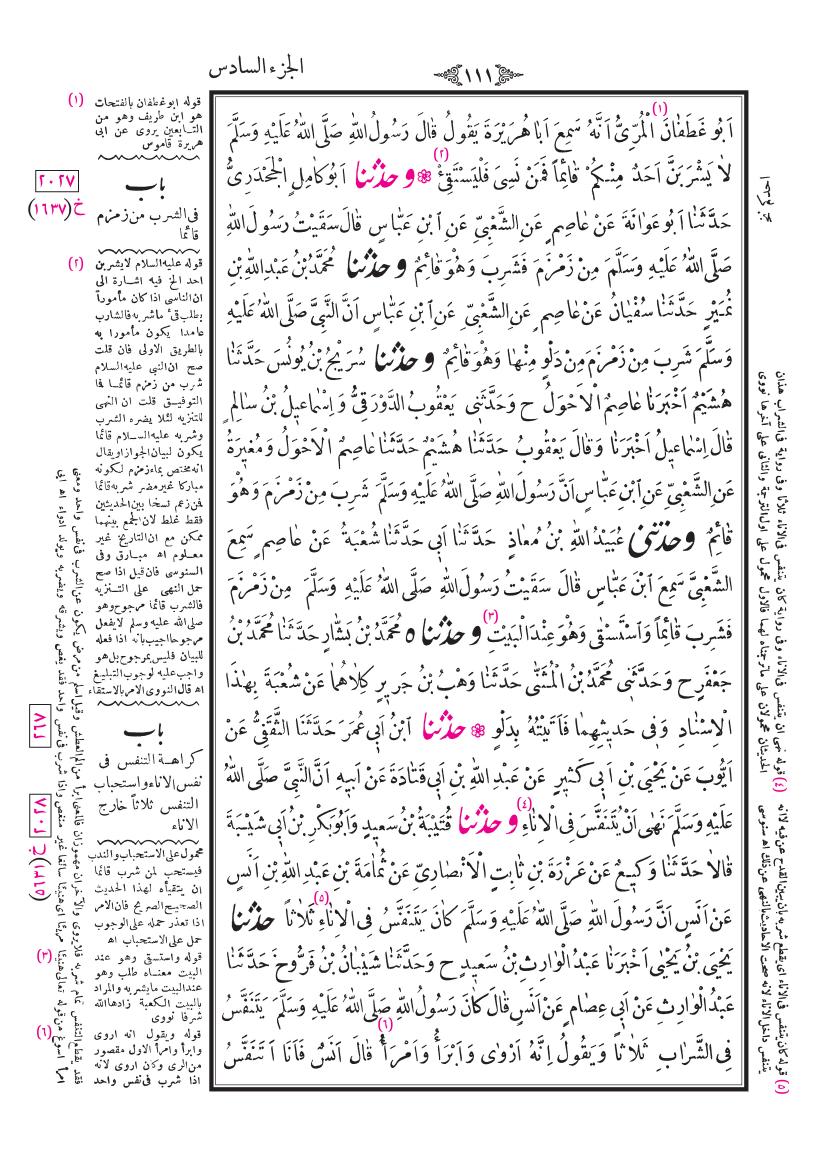 الجزء السادس
١١١
اَبُو غَطَفَانَ الْمُرِّىُّ (١) اَنَّهُ سَمِعَ اَبَا هُرَيْرَةَ يَقُولُ قَالَ رَسُولُ اللهِ صَلَّى اللهُ عَلَيْهِ وَسَلَّمَ
لَا يَشْرَبَنَّ اَحَدٌ مِنْكُمْ قَائِمًا فَمَنْ نَسِىَ فَلْيَسْتَقِئْ (٢) ❁ وحدثنا اَبُو كَامِلٍ الْجَحْدَرِىُّ
حَدَّثَنَا اَبُو عَوَانَةَ عَنْ عَاصِمٍ عَنِ الشَّعْبِىِّ عَنِ ابْنِ عَبَّاسٍ قَالَ سَقَيْتُ رَسُولَ اللهِ
صَلَّى اللهُ عَلَيْهِ وَسَلَّمَ مِنْ زَمْزَمَ فَشَرِبَ وَهُوَ قَائِمٌ وحدثنا مُحَمَّدُ بْنُ عَبْدِ اللهِ بْنِ
نُمَيْرٍ حَدَّثَنَا سُفْيَانُ عَنْ عَاصِمٍ عَنِ الشَّعْبِىِّ عَنِ ابْنِ عَبَّاسٍ اَنَّ النَّبِىَّ صَلَّى اللهُ عَلَيْهِ
وَسَلَّمَ شَرِبَ مِنْ زَمْزَمَ مِنْ دَلْوٍ مِنْهَا وَهُوَ قَائِمٌ وحدثنا سُرَيْجُ بْنُ يُونُسَ حَدَّثَنَا
هُشَيْمٌ اَخْبَرَنَا عَاصِمٌ الْاَحْوَلُ ح وَحَدَّثَنِى يَعْقُوبُ الدَّوْرَقِىُّ وَاِسْمَاعِيلُ بْنُ سَالِمٍ
قَالَ اِسْمَاعِيلُ اَخْبَرَنَا وَقَالَ يَعْقُوبُ حَدَّثَنَا هُشَيْمٌ حَدَّثَنَا عَاصِمٌ الْاَحْوَلُ وَمُغِيرَةُ
عَنِ الشَّعْبِىِّ عَنِ ابْنِ عَبَّاسٍ اَنَّ رَسُولَ اللهِ صَلَّى اللهُ عَلَيْهِ وَسَلَّمَ شَرِبَ مِنْ زَمْزَمَ وَهُوَ
قَائِمٌ وحدثنى عُبَيْدُ اللهِ بْنُ مُعَاذٍ حَدَّثَنَا اَبِى حَدَّثَنَا شُعْبَةُ عَنْ عَاصِمٍ سَمِعَ
الشَّعْبِىَّ سَمِعَ ابْنَ عَبَّاسٍ قَالَ سَقَيْتُ رَسُولَ اللهِ صَلَّى اللهُ عَلَيْهِ وَسَلَّمَ مِنْ زَمْزَمَ
فَشَرِبَ قَائِمًا وَاسْتَسْقَى وَهُوَ عِنْدَ الْبَيْتِ (٣) وحدثناه مُحَمَّدُ بْنُ بَشَّارٍ حَدَّثَنَا مُحَمَّدُ بْنُ
جَعْفَرٍ ح وَحَدَّثَنِى مُحَمَّدُ بْنُ الْمُثَنَّى حَدَّثَنَا وَهْبُ بْنُ جَرِيرٍ كِلَاهُمَا عَنْ شُعْبَةَ بِهٰذَا
الْاِسْنَادِ وَفِى حَدِيثِهِمَا فَاَتَيْتُهُ بِدَلْوٍ ❁ حدثنا ابْنُ اَبِى عُمَرَ حَدَّثَنَا الثَّقَفِىُّ عَنْ
اَيُّوبَ عَنْ يَحْيَى بْنِ اَبِى كَثِيرٍ عَنْ عَبْدِ اللهِ بْنِ اَبِى قَتَادَةَ عَنْ اَبِيهِ اَنَّ النَّبِىَّ صَلَّى اللهُ
عَلَيْهِ وَسَلَّمَ نَهَى اَنْ يُتَنَفَّسَ فِى الْاِنَاءِ (٤) وحدثنا قُتَيْبَةُ بْنُ سَعِيدٍ وَاَبُو بَكْرِ بْنُ اَبِى شَيْبَةَ
قَالَا حَدَّثَنَا وَكِيعٌ عَنْ عَزْرَةَ بْنِ ثَابِتٍ الْاَنْصَارِىِّ عَنْ ثُمَامَةَ بْنِ عَبْدِ اللهِ بْنِ اَنَسٍ
عَنْ اَنَسٍ اَنَّ رَسُولَ اللهِ صَلَّى اللهُ عَلَيْهِ وَسَلَّمَ كَانَ يَتَنَفَّسُ فِى الْاِنَاءِ (٥) ثَلَاثًا حدثنا
يَحْيَى بْنُ يَحْيَى اَخْبَرَنَا عَبْدُ الْوَارِثِ بْنُ سَعِيدٍ ح وَحَدَّثَنَا شَيْبَانُ بْنُ فَرُّوخَ حَدَّثَنَا
عَبْدُ الْوَارِثِ عَنْ اَبِى عِصَامٍ عَنْ اَنَسٍ قَالَ كَانَ رَسُولُ اللهِ صَلَّى اللهُ عَلَيْهِ وَسَلَّمَ يَتَنَفَّسُ
فِى الشَّرَابِ ثَلَاثًا وَيَقُولُ اِنَّهُ اَرْوَى وَاَبْرَأُ وَاَمْرَأُ (٦) قَالَ اَنَسٌ فَاَنَا اَتَنَفَّسُ
(١) قوله ابو غطفان بالفتحات
هو ابن طريف وهو من
التابعين يروى عن ابى
هريرة قاموس
باب
فى الشرب من زمزم
قائما
٢٠٢٧
خ (١٦٣٧)
(٢) قوله عليه السلام لا يشربن
احد الخ فيه اشارة الى
ان الناسى اذا كان مأموراً
بطلب قئ ما شربه فالشارب
عامدا يكون مأمورا به
بالطريق الاولى فان قلت
صح ان النبى عليه السلام
شرب من زمزم قائما فما
التوفيق قلت ان النهى
للتنزيه لئلا يضره الشرب
وشربه عليه السلام قائما
يكون لبيان الجواز او يقال
انه مختص بماء زمزم لكونه
مباركا غير مضر شربه قائما
فمن زعم نسخا بين الحديثين
فقط غلط لان الجمع بينهما
ممكن مع ان التاريخ غير
معلوم اه مبارق وفى
السنوسى فان قيل اذا صح
حمل النهى على التنزيه
فالشرب قائما مرجوح وهو
صلى الله عليه وسلم لا يفعل
مرجوحا اجيب بانه اذا فعله
للبيان فليس بمرجوح بل هو
واجب عليه لوجوب التبليغ
اه قال النووى الامر بالاستقاء
باب
كراهة التنفس فى
نفس الاناء واستحباب
التنفس ثلاثاً خارج
الاناء
محمول على الاستحباب والندب
فيستحب لمن شرب قائما
ان يتقيأه لهذا الحديث
الصحيح الصريح فان الامر
اذا تعذر حمله على الوجوب
حمل على الاستحباب اه
(٣) قوله واستسق وهو عند
البيت معناه طلب وهو
عند البيت ما يشربه والمراد
بالبيت الكعبة زادها الله
شرفا نووى
(٦) قوله ويقول انه اروى
وابرأ وامرأ الاول مقصور
من الرى وكان اروى لانه
اذا شرب فى نفس واحد